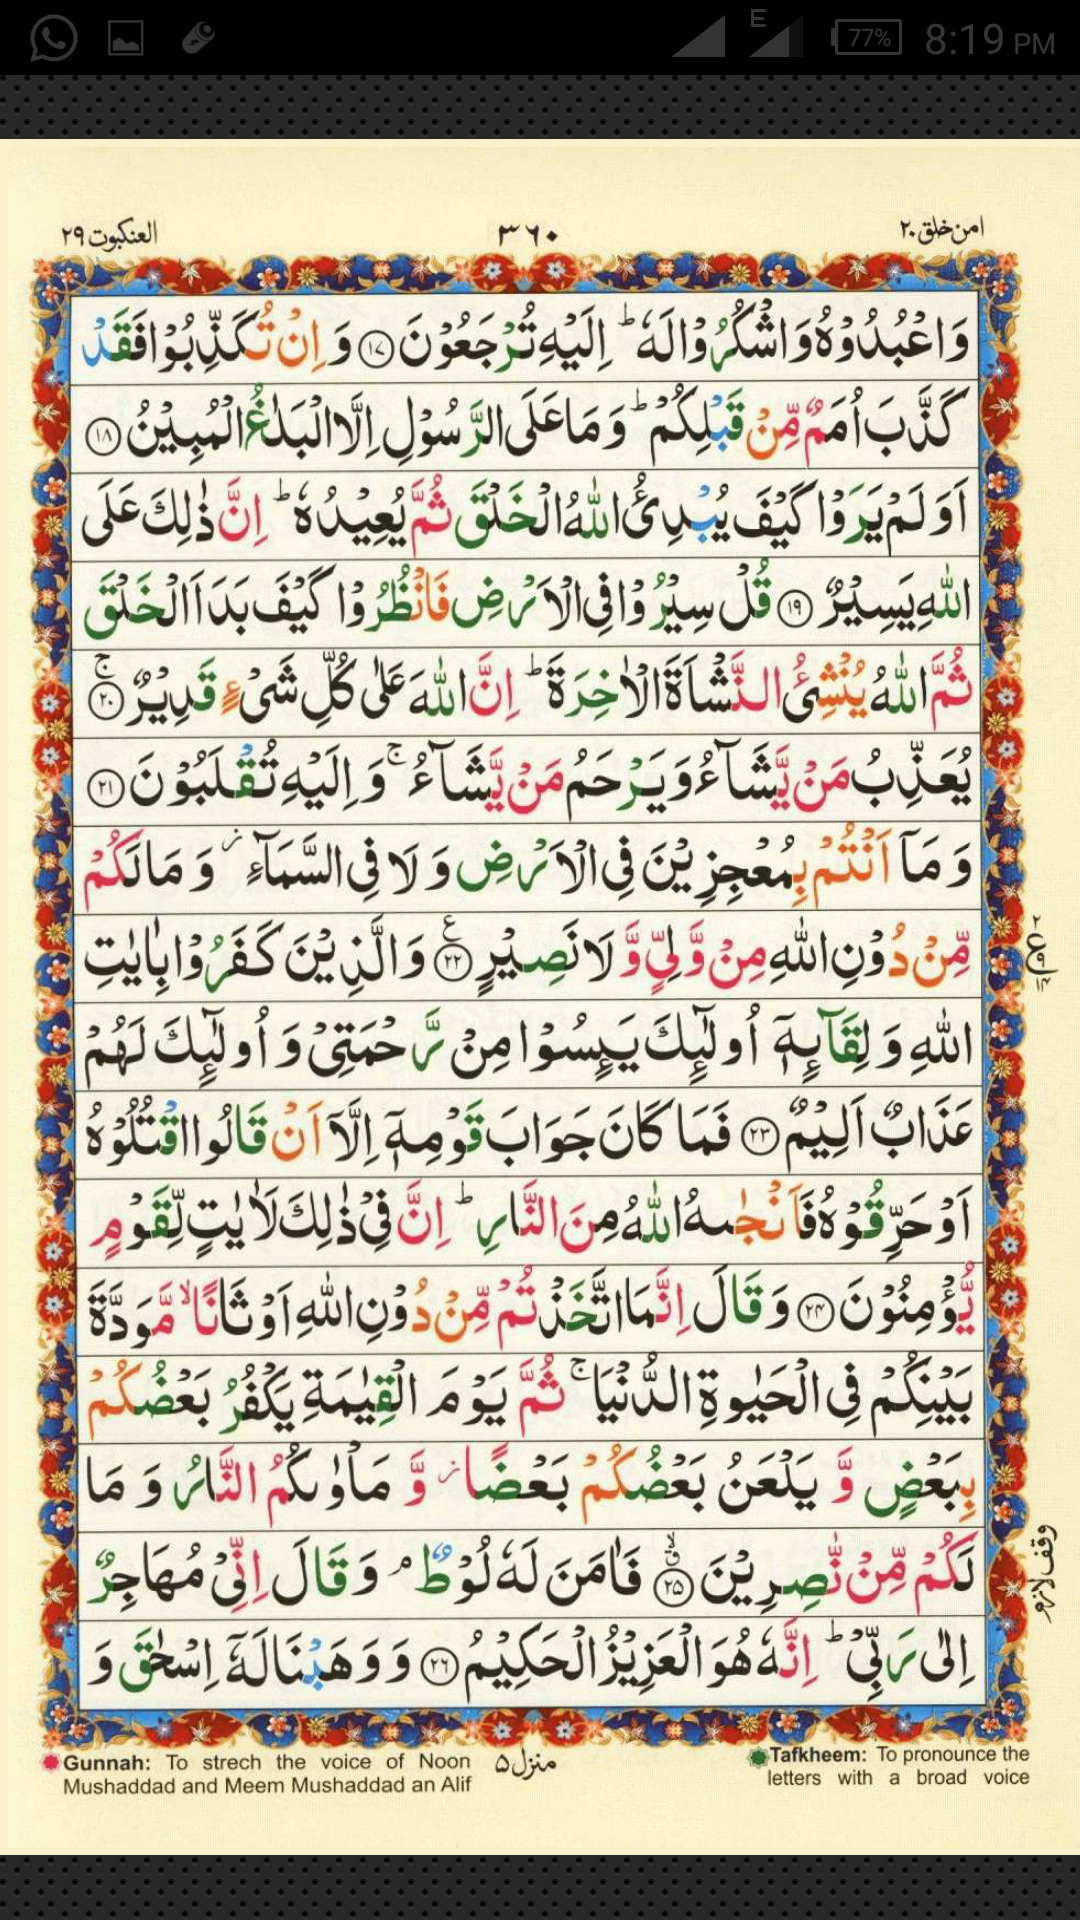 77% 8:19 PM
E
امن خلق ٢٠
٣٦٠
العنكبوت ٢٩
وَاعْبُدُوْهُ وَاشْكُرُوْا لَهٗ ؕ اِلَيْهِ تُرْجَعُوْنَ ﴿۱۷﴾ وَ اِنْ تُكَذِّبُوْا فَقَدْ
كَذَّبَ اُمَمٌ مِّنْ قَبْلِكُمْ ؕ وَ مَا عَلَى الرَّسُوْلِ اِلَّا الْبَلٰغُ الْمُبِيْنُ ﴿۱۸﴾
اَوَ لَمْ يَرَوْا كَيْفَ يُبْدِئُ اللّٰهُ الْخَلْقَ ثُمَّ يُعِيْدُهٗ ؕ اِنَّ ذٰلِكَ عَلَى
اللّٰهِ يَسِيْرٌ ﴿۱۹﴾ قُلْ سِيْرُوْا فِى الْاَرْضِ فَانْظُرُوْا كَيْفَ بَدَاَ الْخَلْقَ
ثُمَّ اللّٰهُ يُنْشِئُ النَّشْاَةَ الْاٰخِرَةَ ؕ اِنَّ اللّٰهَ عَلٰى كُلِّ شَىْءٍ قَدِيْرٌ ﴿۲۰﴾ۚ
يُعَذِّبُ مَنْ يَّشَآءُ وَ يَرْحَمُ مَنْ يَّشَآءُ ۚ وَ اِلَيْهِ تُقْلَبُوْنَ ﴿۲۱﴾
وَ مَاۤ اَنْتُمْ بِمُعْجِزِيْنَ فِى الْاَرْضِ وَ لَا فِى السَّمَآءِ ؗ وَ مَا لَكُمْ
مِّنْ دُوْنِ اللّٰهِ مِنْ وَّلِىٍّ وَّ لَا نَصِيْرٍ ﴿۲۲﴾ وَ الَّذِيْنَ كَفَرُوْا بِاٰيٰتِ
اللّٰهِ وَ لِقَآئِهٖۤ اُولٰٓئِكَ يَئِسُوْا مِنْ رَّحْمَتِىْ وَ اُولٰٓئِكَ لَهُمْ
عَذَابٌ اَلِيْمٌ ﴿۲۳﴾ فَمَا كَانَ جَوَابَ قَوْمِهٖۤ اِلَّاۤ اَنْ قَالُوا اقْتُلُوْهُ
اَوْ حَرِّقُوْهُ فَاَنْجٰىهُ اللّٰهُ مِنَ النَّارِ ؕ اِنَّ فِىْ ذٰلِكَ لَاٰيٰتٍ لِّقَوْمٍ
يُّؤْمِنُوْنَ ﴿۲۴﴾ وَ قَالَ اِنَّمَا اتَّخَذْتُمْ مِّنْ دُوْنِ اللّٰهِ اَوْثَانًا ۙ مَّوَدَّةَ
بَيْنِكُمْ فِى الْحَيٰوةِ الدُّنْيَا ۚ ثُمَّ يَوْمَ الْقِيٰمَةِ يَكْفُرُ بَعْضُكُمْ
بِبَعْضٍ وَّ يَلْعَنُ بَعْضُكُمْ بَعْضًا ؗ وَّ مَاْوٰىكُمُ النَّارُ وَ مَا
لَكُمْ مِّنْ نّٰصِرِيْنَ ﴿۲۵﴾ۗۙ فَاٰمَنَ لَهٗ لُوْطٌ ۘ وَ قَالَ اِنِّىْ مُهَاجِرٌ
وقف لازم
اِلٰى رَبِّىْ ؕ اِنَّهٗ هُوَ الْعَزِيْزُ الْحَكِيْمُ ﴿۲۶﴾ وَ وَهَبْنَا لَهٗۤ اِسْحٰقَ وَ
Gunnah: To strech the voice of Noon
Mushaddad and Meem Mushaddad an Alif
منزل ۵
Tafkheem: To pronounce the
letters with a broad voice